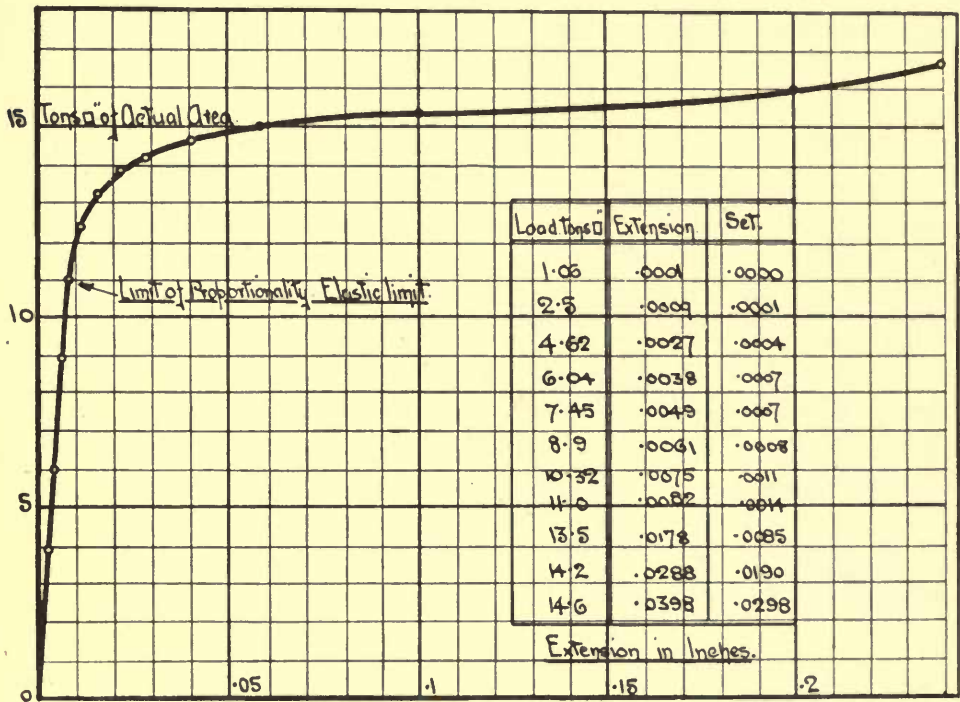 15
Tons□" of Actual Area.
Limit of Proportionality Elastic limit.
10
5
0
Load Tons□" Extension Set.
1·05 ·0001 ·0000
2·5 ·0009 ·0001
4·62 ·0027 ·0004
6·04 ·0038 ·0007
7·45 ·0049 ·0007
8·9 ·0061 ·0008
10·32 ·0075 ·0011
11·0 ·0082 ·0014
13·5 ·0178 ·0085
14·2 ·0288 ·0190
14·6 ·0398 ·0298
Extension in Inches.
·05 ·1 ·15 ·2